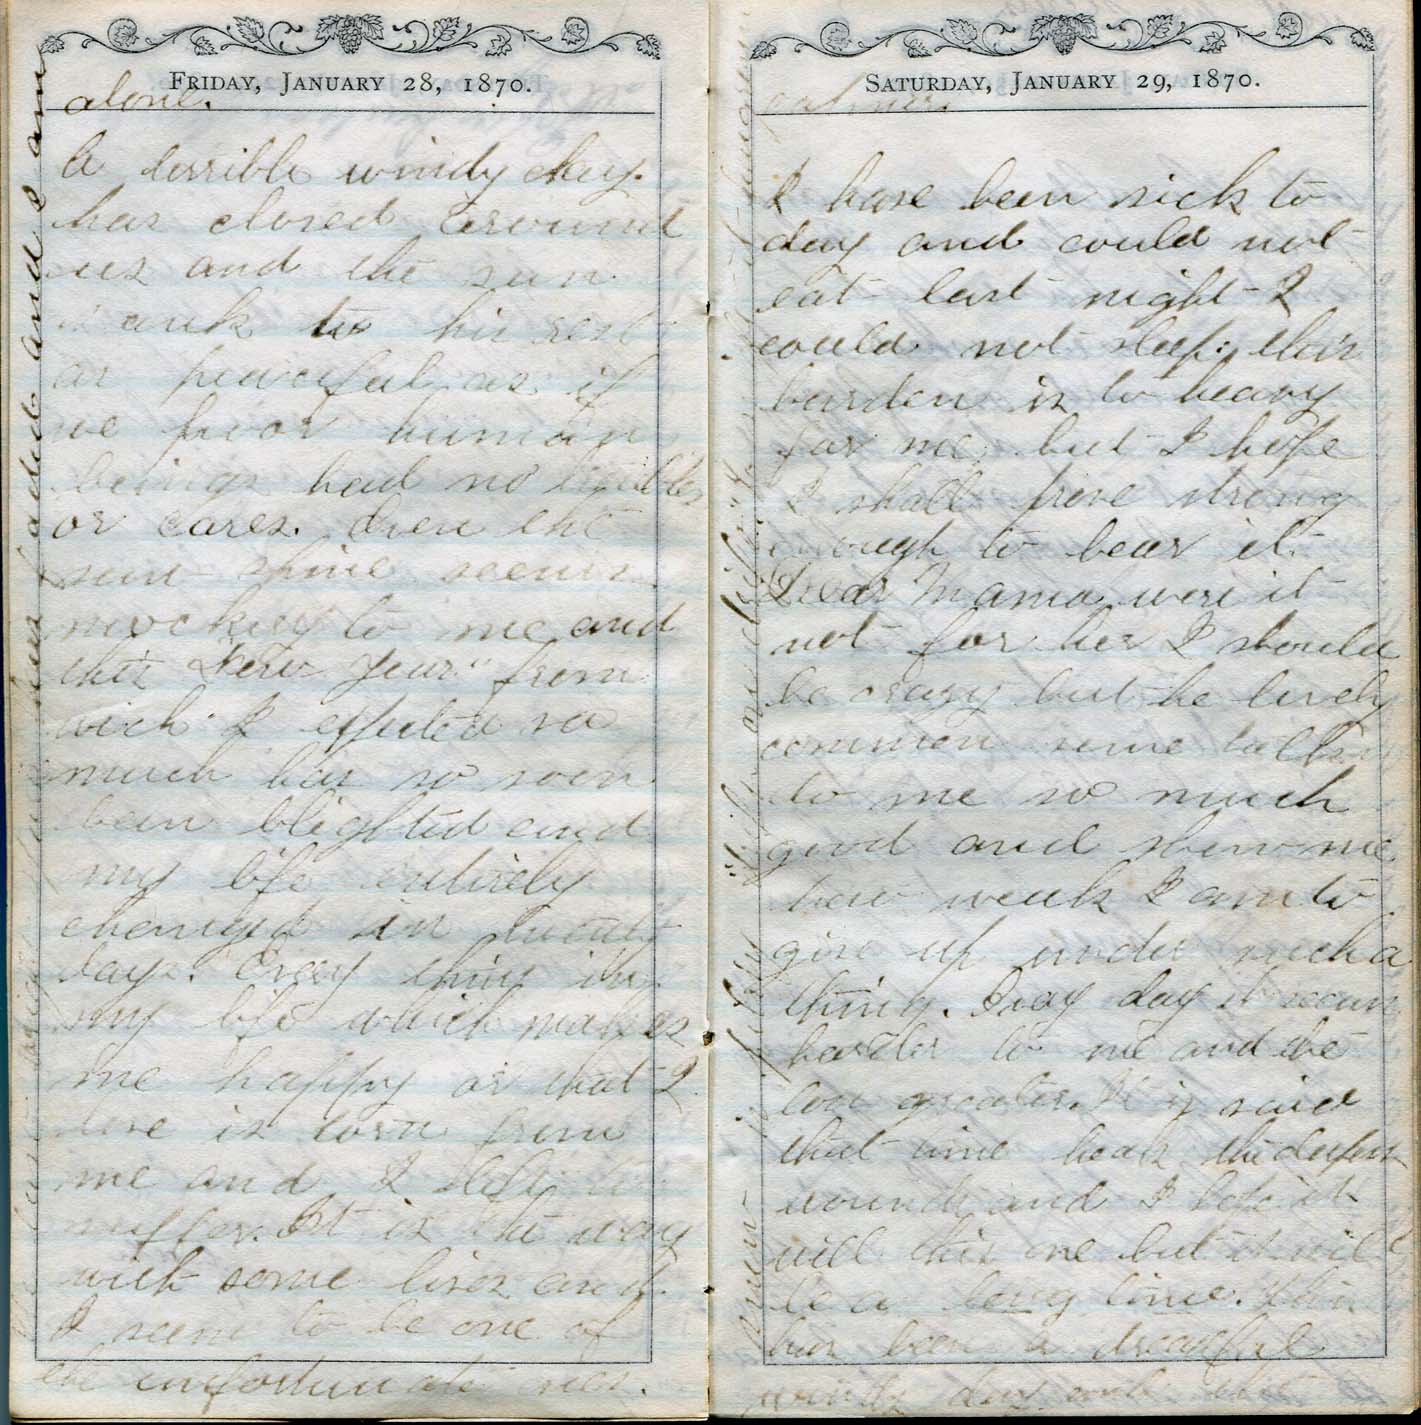 FRIDAY, JANUARY 28, 1870.
alone.
A terrible windy day.
has closed around
us and the sun
sank to his rest
as peaceful as if
we poor human
beings had no troubles
or cares. Even the
sun shine seems
mockery to me and
this "New Year" from
wich I expected so
much has so soon
been blighted and
my life entirely
changed in twenty
days. Every thing in
my life which makes
me happy or that I
love is torn from
me and I left to
suffer. It is the way
with some lives and
I seem to be one of
the unfortunate ones.
faded and I am
SATURDAY, JANUARY 29, 1870.
I have been sick to
day and could not
eat last night I
could not sleep: this
burden is to heavy
for me but I hope
I shall prove strong
enough to bear it
Dear Mama were it
not for her I should
be crazy but he lively
common sense talks
to me so much
good and show me
how weak I am to
give up under such a
thing. Evay day it seems
harder to me and the
loss greater. It is said
that time heals the deepest
wounds and I hope it
will this one but it will
be a long time. This
has been a dreadful
windy day and